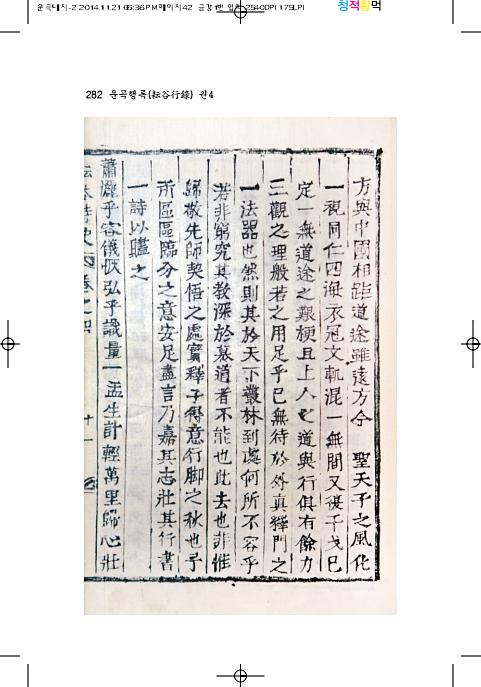 운곡내지-2 2014.11.21 05:36 PM 페이지42
청적황먹
282 운곡행록(耘谷行錄) 권4
方輿中國相距道途雖遠方今 聖天子之風化
一視同仁四海衣冠文軌混一無間又復干戈已
定一無道途之艱梗且上人之道與行俱有餘力
三觀之理般若之用足乎已無待於外真釋門之
一法器也然則其於天下叢林到處何所不容乎
若非窮究其教深於慕道者不能也此去也非惟
歸敬先師契悟之處實釋子得意行脚之秋也予
所區區臨分之意安足盡言乃嘉其志壯其行書
一詩以贐之
蕭灑乎容儀恢弘乎識量一盂生計輕萬里歸心壯
卷之四
十一